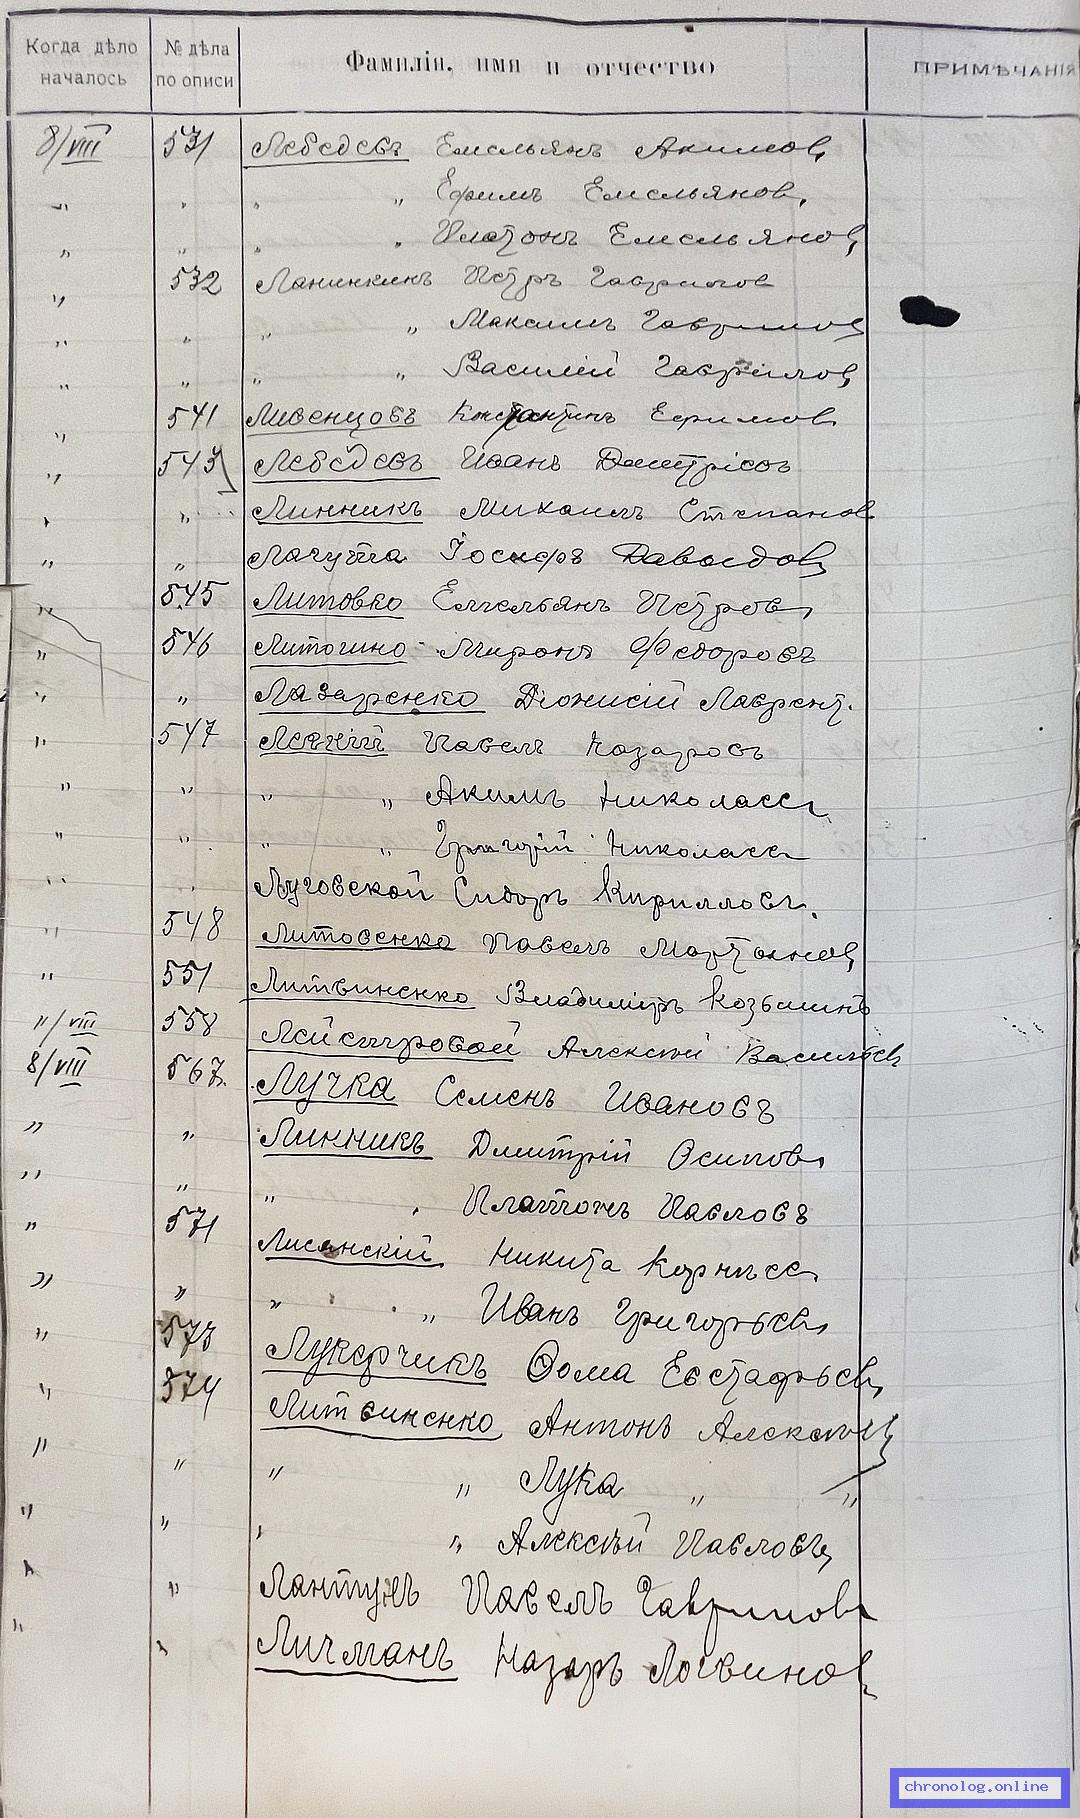 Когда дѣло началось № дѣла по описи Фамилія, имя и отчество ПРИМѢЧАНІЯ
8/VIII 531 Лебедевъ Емельянъ Акимовъ
" " " " Ефимъ Емельяновъ
" " " " Платонъ Емельяновъ
" 532 Ланинкинъ Петръ Гавриловъ
" " " " Максимъ Гавриловъ
" " " " Василій Гавриловъ
" 541 Ливенцовъ Константинъ Ефимовъ
" 543 Лебедевъ Иванъ Дмитріевъ
" " Линникъ Михаилъ Степановъ
" " Лагута Іосифъ Давыдовъ
" 545 Литовко Емельянъ Петровъ
" 546 Миронъ Федоровъ
" " Лазаренко Діонисій Лаврент.
" 547 Легкій Павелъ Назаровъ
" " " " Акимъ Николаев
" " " " Григорій Николаев
" " Луговской Сидоръ Кирилловъ
" 548 Литовенко Павелъ Мартыновъ
" 551 Литвиненко Владиміръ Козьминъ
11/VIII 558 Алексѣй Васильев
8/VIII 567 Лучка Семенъ Ивановъ
" " Линникъ Дмитрій Осиповъ
" " " " Платонъ Павловъ
" 571 Лисянскій Никита Корнѣев
" " " " Иванъ Григорьевъ
" 573 Лукерчикъ Ѳома Евстафьев
" 574 Литвиненко Антонъ Алексѣев
" " " " Лука " "
" " " " Алексѣй Павловъ
" " Лантухъ Павелъ Гавриловъ
" " Личманъ Назаръ Логвиновъ
chronolog.online